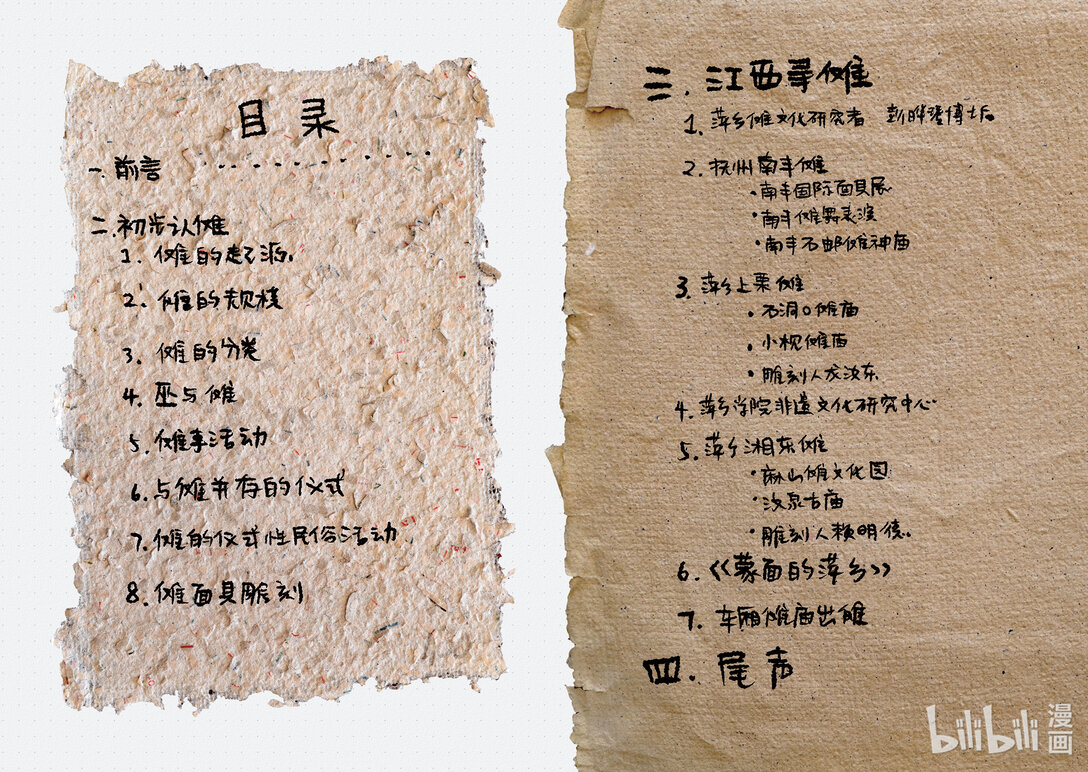 目录
一.前言
二.初步认傩
1.傩的起源.
2.傩的规模
3.傩的分类
4.巫与傩
5.傩事活动
6.与傩并存的仪式
7.傩的仪式性民俗活动
8.傩面具雕刻
三.江西寻傩
1.萍乡傩文化研究者 彭 博士后
2.抚州南丰傩
·南丰国际面具展
·南丰傩舞表演
·南丰石邮傩神庙
3.萍乡上栗傩
·石洞口傩庙
·小枧傩庙
·雕刻人 东
4.萍乡学院非遗文化研究中心
5.萍乡湘东傩
·麻山傩文化园
·汶泉古庙
·雕刻人赖明德.
6.《蒙面的萍乡》
7.车厢傩庙出傩
四.尾声
bilibili漫画